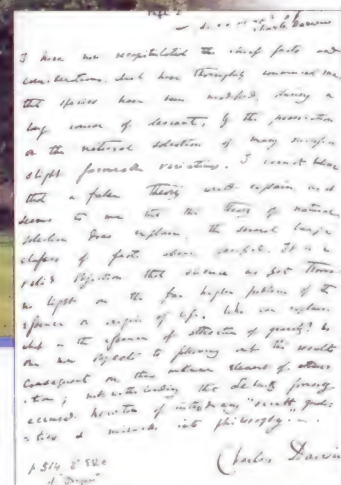 Charles Darwin
I have now recapitulated the chief facts and
considerations which have thoroughly convinced me
that species have been modified, during a
long course of descent, by the preservation
or the natural selection of many successive
slight favourable variations. I cannot believe
that a false theory would explain, as it
seems to me that the theory of natural
selection does explain, the several large
classes of facts above specified. It is no
valid objection that science as yet throws
no light on the far higher problem of the
essence or origin of life. Who can explain
what is the essence of attraction of gravity? No
one now objects to following out the results
consequent on this unknown element of attrac-
-tion; notwithstanding that Leibnitz formerly
accused Newton of introducing "occult quali-
-ties & miracles into philosophy".
Charles Darwin
p 514 2d Ed.
of Origin